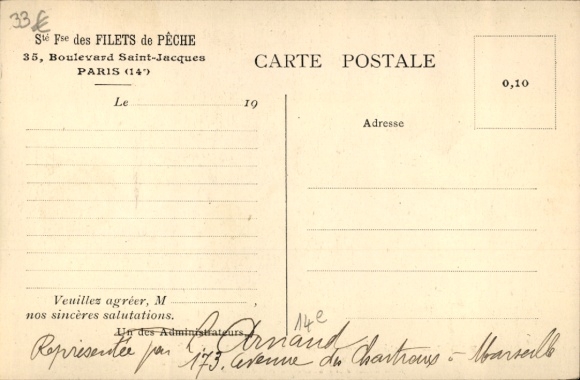 33 €
Sté Fse des FILETS de PÊCHE
35, Boulevard Saint-Jacques
PARIS (14e)
CARTE POSTALE
0,10
Le 19
Adresse
Veuillez agréer, M ,
nos sincères salutations.
Un des Administrateurs,
14e
Représentée par L. Arnaud
173. avenue des Chartreux à Marseille